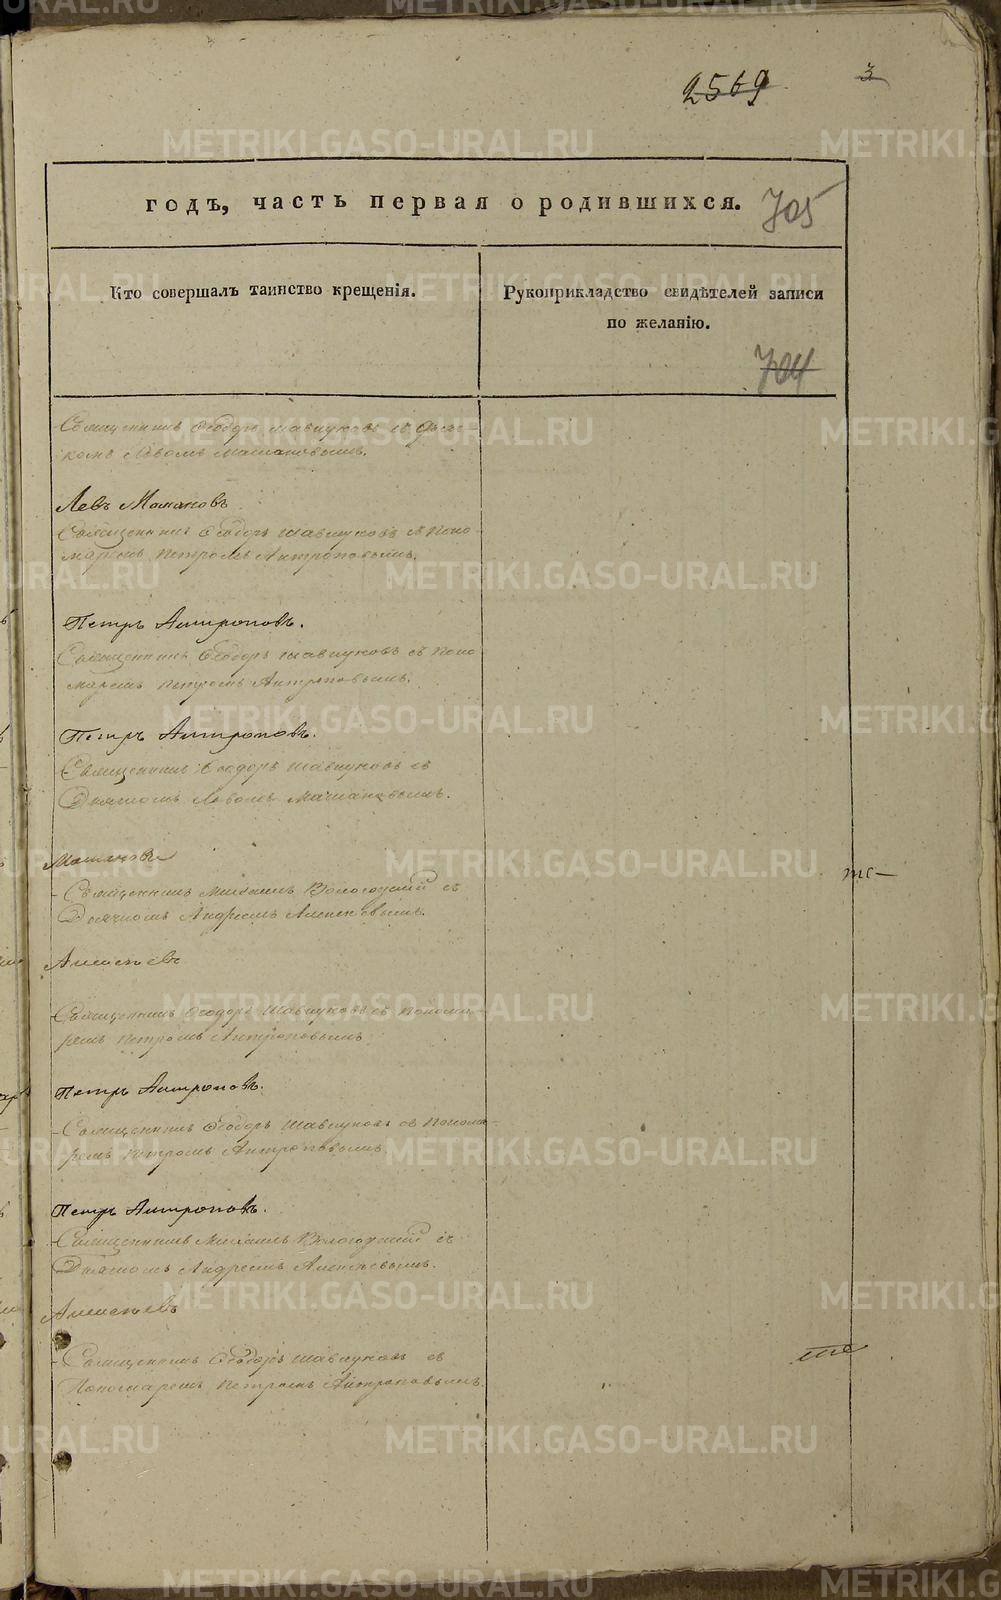 2569
3
годъ, часть первая о родившихся.
705
Кто совершалъ таинство крещенія.
Рукоприкладство свидѣтелей записи
по желанію.
704
Священникъ Ѳеодоръ съ
Левъ
Священникъ Ѳеодоръ съ Поно-
маремъ Петромъ Антроповымъ.
Петръ Антроповъ.
Священникъ Ѳеодоръ съ Поно-
маремъ Петромъ Антроповымъ.
Петръ Антроповъ.
Священникъ Ѳеодоръ съ
Дьячкомъ
Священникъ Михаилъ Вологодскій съ
Дьячкомъ Андреемъ Алексѣевымъ.
Алексѣевъ
Священникъ Ѳеодоръ съ Понома-
ремъ Петромъ Антроповымъ
Петръ Антроповъ.
Священникъ Ѳеодоръ съ Понома-
ремъ Петромъ Антроповымъ
Петръ Антроповъ.
Священникъ Михаилъ Вологодскій съ
Дьячкомъ Андреемъ Алексѣевымъ.
Алексѣевъ
Священникъ Ѳеодоръ съ
Пономаремъ Петромъ Антроповымъ.
METRIKI.GASO-URAL.RU